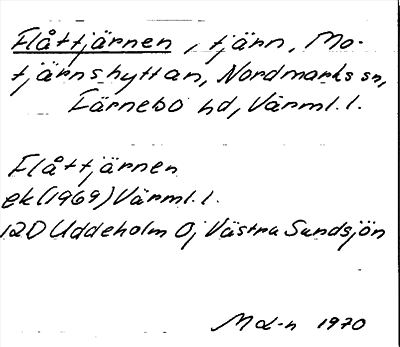 Flåttjärnen, tjärn, Mo-
tjärnshyttan, Nordmarks sn,
Färnebo hd, Värml. l.
Flåttjärnen
ek (1969) Värml. l.
12D Uddeholm 0j Västra Sundsjön
1970